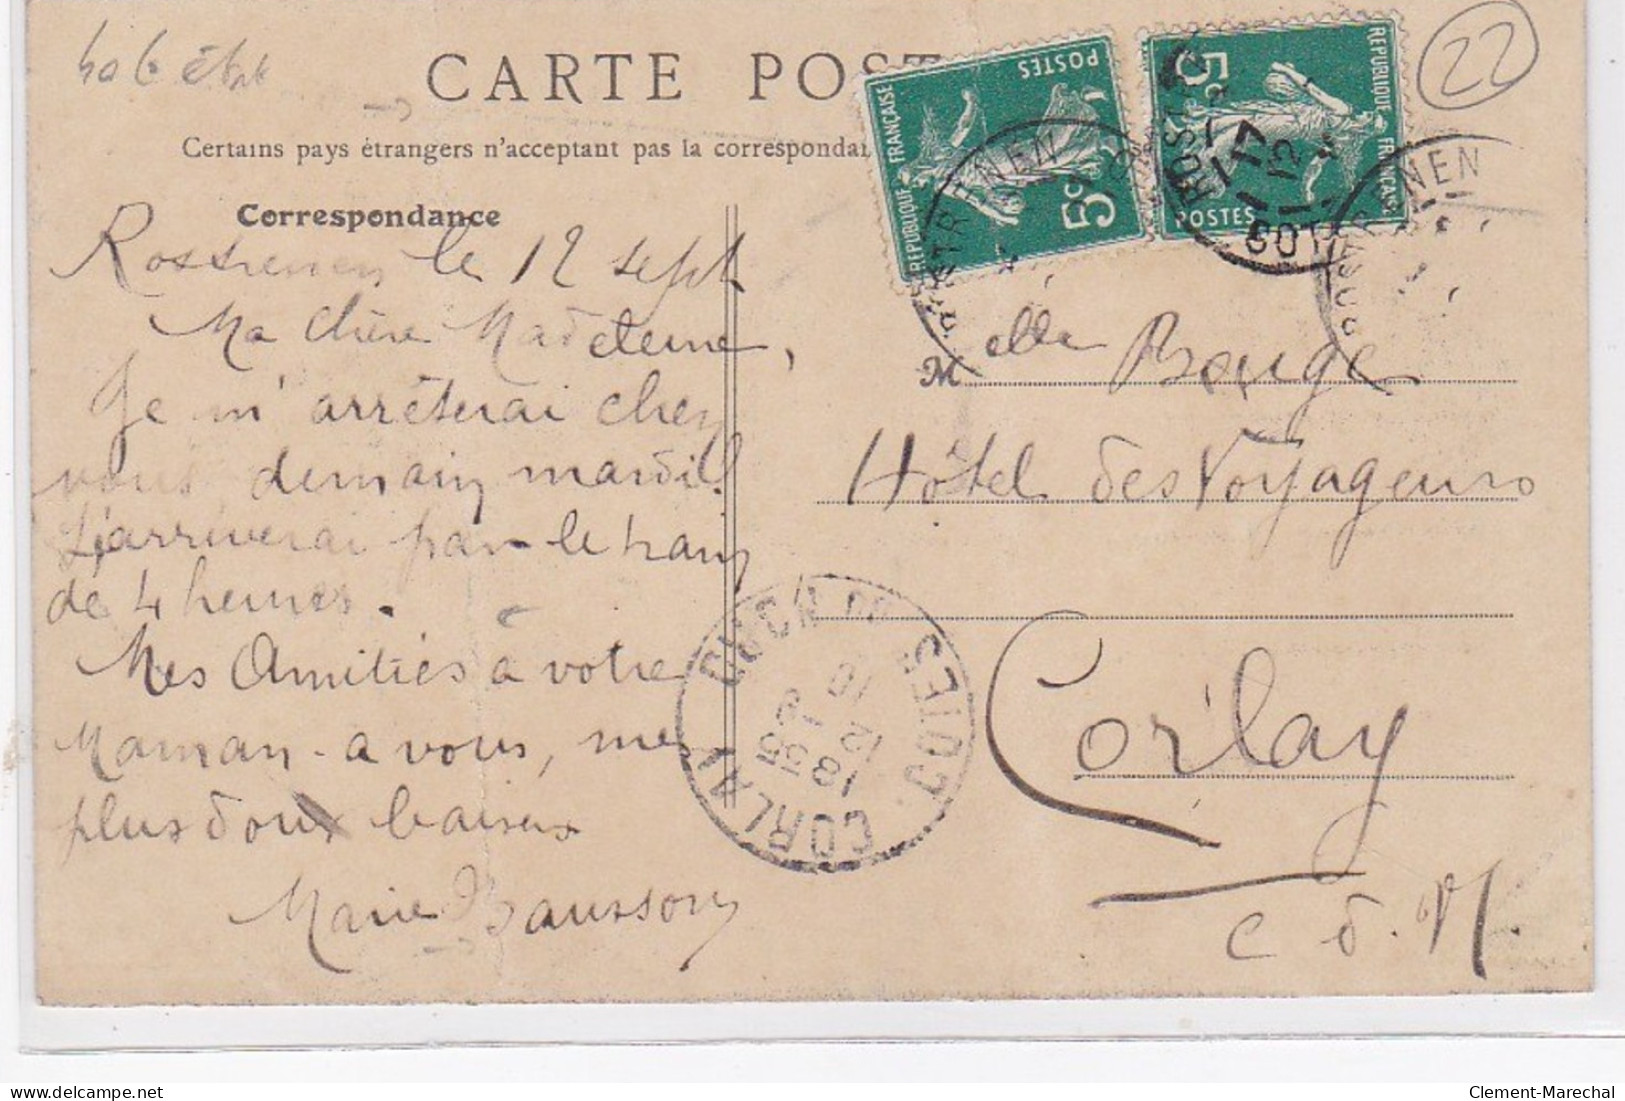 CARTE POST
Certains pays étrangers n'acceptant pas la correspondan
22
Correspondance
Rostrenen le 12 sept
Ma chère Madeleine,
Je m'arrêterai chez
vous demain mardi.
J'arriverai par le train
de 4 heures.
Mes Amitiés à votre
Maman - a vous, mes
plus doux baisers
Marie
POSTES
REPUBLIQUE FRANÇAISE
5c
5c
POSTES
REPUBLIQUE FRANÇAISE
ROSTRENEN
17
12
M elle Rouge
Hôtel des Voyageurs
Corlay
C. d. N.
CORLAY COTES DU NORD
18 35
12
Clement-Marechal